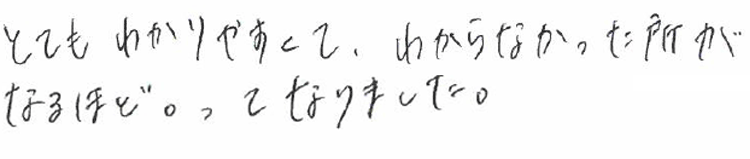 とてもわかりやすくて、わからなかった所が
なるほど。ってなりました。